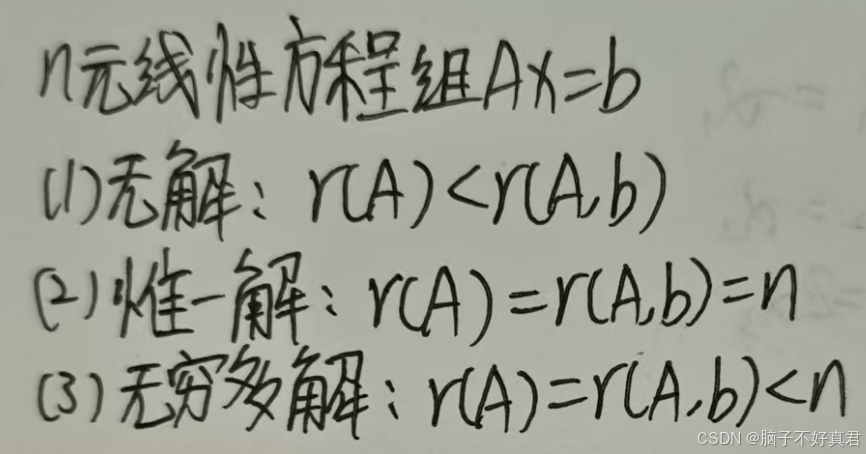 n元线性方程组Ax=b
(1)无解：r(A)<r(A,b)
(2)惟一解：r(A)=r(A,b)=n
(3)无穷多解：r(A)=r(A,b)<n
CSDN @脑子不好真君